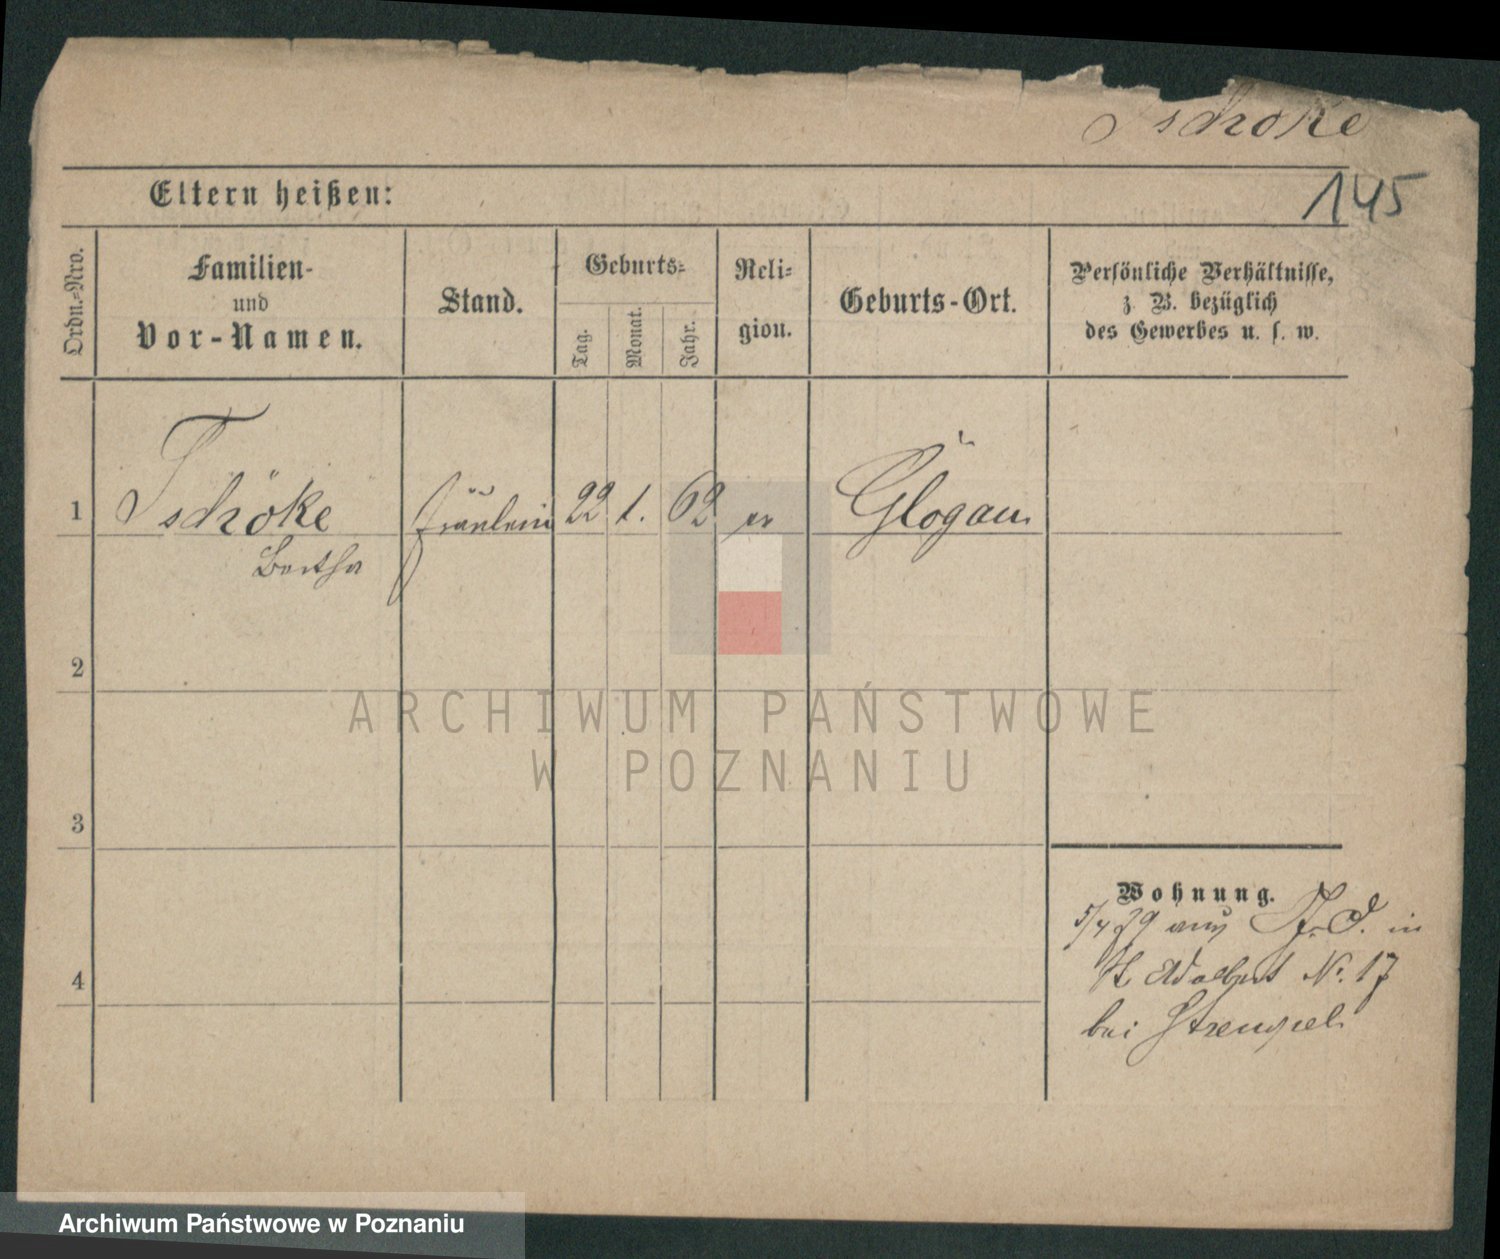 Tschoke
145
Eltern heißen:
Ordn.-Nro.
Familien-
und
Vor-Namen.
Stand.
Geburts-
Tag.
Monat.
Jahr.
Reli-
gion.
Geburts-Ort.
Persönliche Verhältnisse,
z. B. bezüglich
des Gewerbes u. s. w.
1 Tschöke Fräulein 22 1. 62 ev Glogau
Bertha
2
3
4
Wohnung.
5/4 79 aus in
St Adalbert Nr. 17
bei Strempel
ARCHIWUM PAŃSTWOWE
W POZNANIU
Archiwum Państwowe w Poznaniu